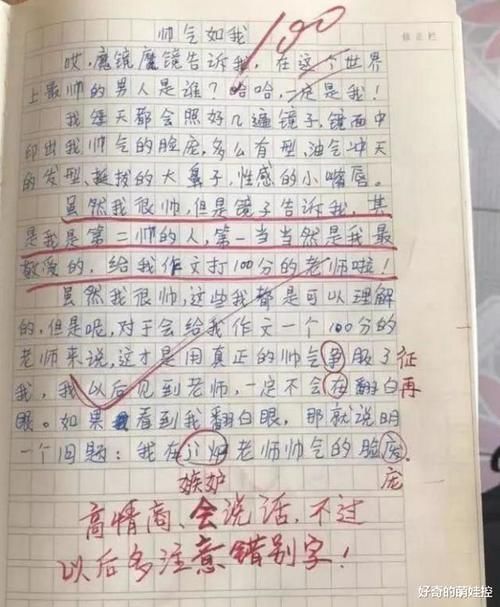 帅气如我
100
修正栏
哎,魔镜魔镜告诉我,在这个世界
上最帅的男人是谁?哈哈,一定是我!
我每天都会照好几遍镜子,镜面中
印出我帅气的脸庞,多么有型,油气冲天
的发型,挺拔的大鼻子,性感的小嘴唇。
虽然我很帅,但是镜子告诉我,其
是我是第二帅的人,第一当当然是我最
敬爱的,给我作文打100分的老师啦!
虽然我很帅,这些我都是可以理解
的,但是呢,对于会给我作文一个100分的
老师来说,这才是用真正的帅气 服了 征
我,我以后见到老师,一定不会在翻白 再
眼。如果 看到我翻白眼,那就说明
一个问题:我在 老师帅气的脸 。
嫉妒 庞
高情商、会说话,不过
以后多注意错别字!
好奇的萌娃控